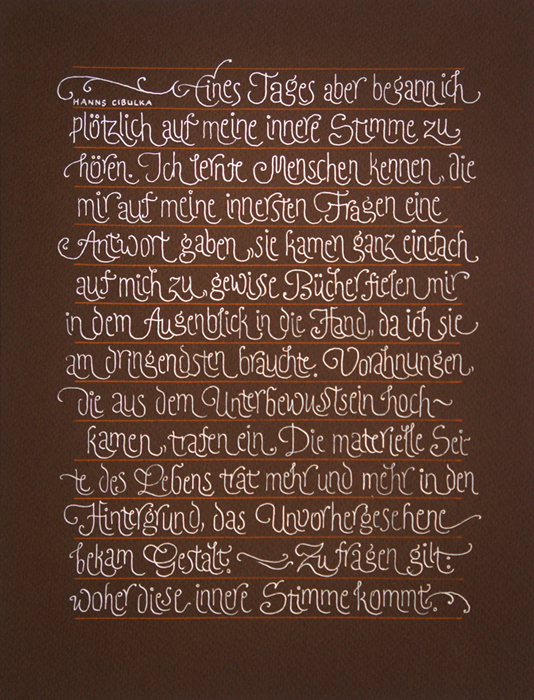 Eines Tages aber begann ich
HANNS CIBULKA
plötzlich auf meine innere Stimme zu
hören. Ich lernte Menschen kennen, die
mir auf meine innersten Fragen eine
Antwort gaben, sie kamen ganz einfach
auf mich zu, gewisse Bücher fielen mir
in dem Augenblick in die Hand, da ich sie
am dringendsten brauchte. Vorahnungen,
die aus dem Unterbewusstsein hoch~
kamen, trafen ein. Die materielle Sei-
te des Lebens trat mehr und mehr in den
Hintergrund, das Unvorhergesehene
bekam Gestalt. ~ Zu fragen gilt:
woher diese innere Stimme kommt.